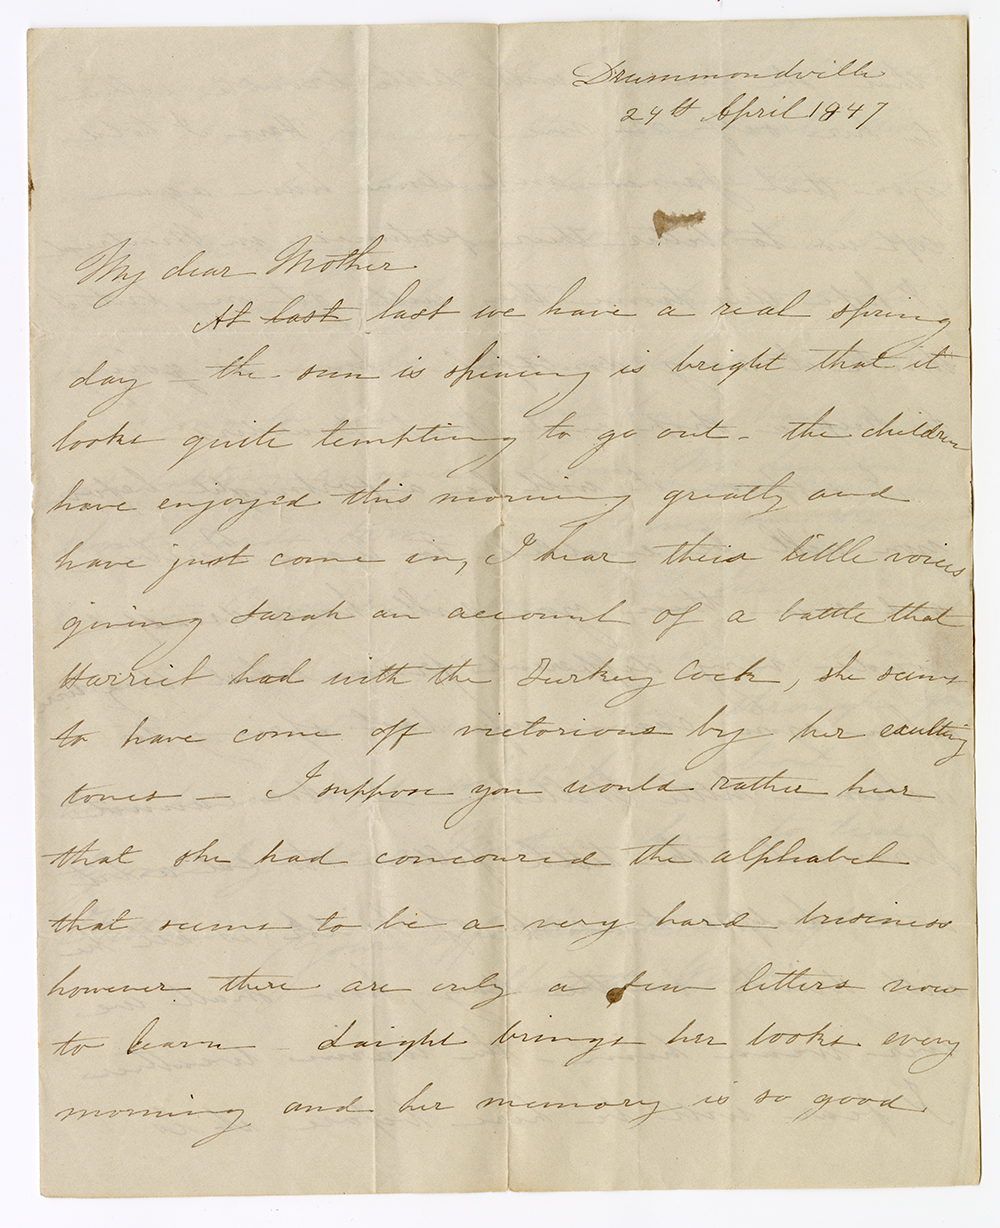 Drummondville
24th April 1847
My dear Mother
At last last we have a real spring
day - the sun is shining is bright that it
looks quite tempting to go out - the children
have enjoyed this morning greatly and
have just come in, I hear their little voices
giving Sarah an account of a battle that
Harriet had with the Turkey Cock, she seems
to have come off victorious by her exulting
tones - I suppose you would rather hear
that she had concoured the alphabet
that seems to be a very hard business
however there are only a few letters now
to learn - brings her books every
morning and her memory is so good